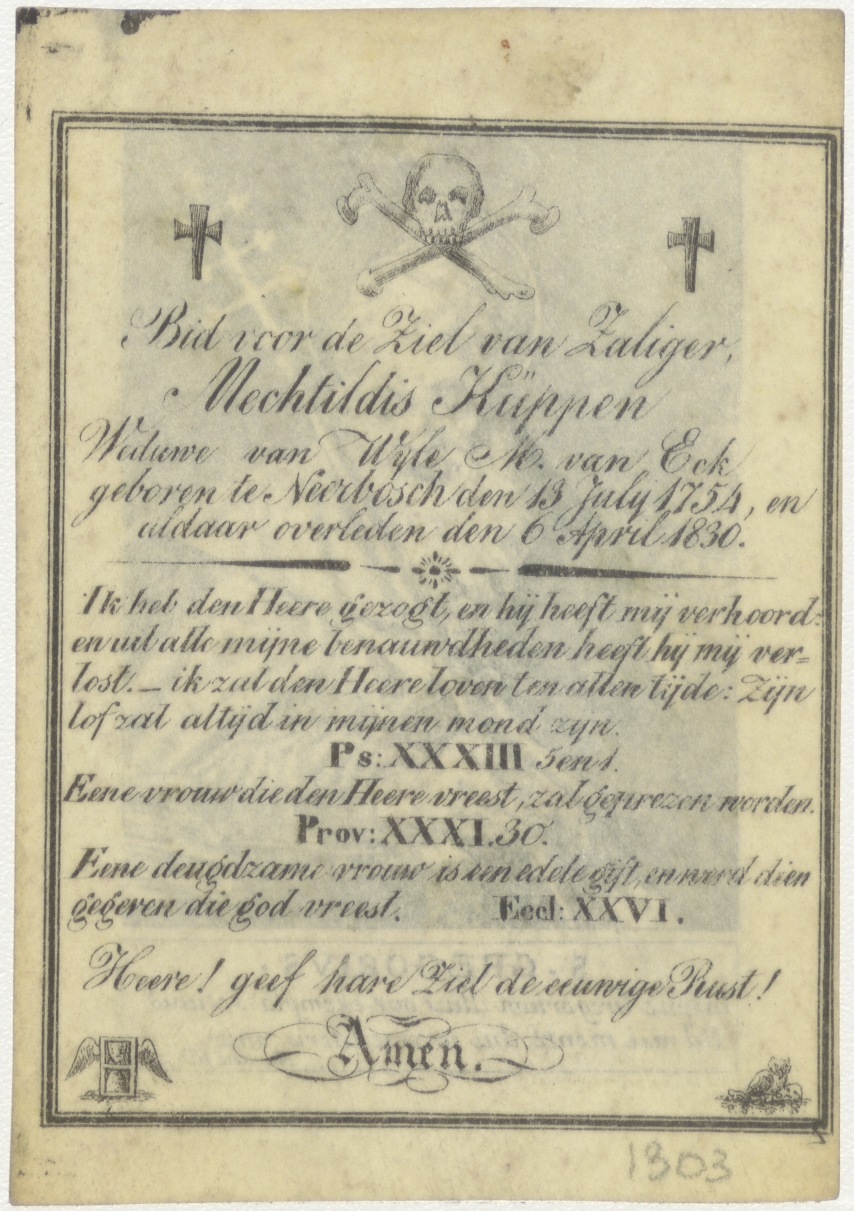 Bid voor de Ziel van Zaliger,
Mechtildis Küppen
Weduwe van Wyle M. van Eck
geboren te Neerbosch den 13 July 1754, en
aldaar overleden den 6 April 1830.
Ik heb den Heere gezogt, en hij heeft mij verhoord:
en uit alle mijne benauwdheden heeft hij mij ver=
lost. _ ik zal den Heere loven ten allen tijde: Zijn
lof zal altijd in mijnen mond zyn.
Ps: XXXIII 5 en 1.
Eene vrouw die den Heere vreest, zal geprezen worden.
Prov: XXXI. 30.
Eene deugdzame vrouw is een edele gift, en werd dien
gegeven die god vreest. Eccl: XXVI.
Heere! geef hare Ziel de eeuwige Rust!
Amen.
1303